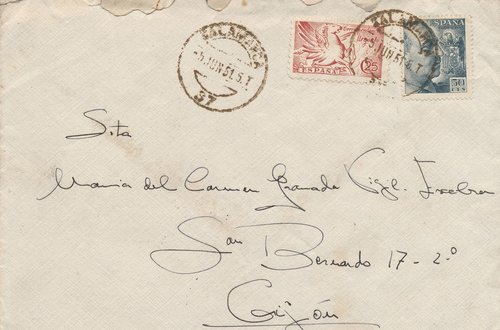 SALAMANCA
5 JUN 51.5.T
37
ESPAÑA
25
SALAMANCA
5 JUN 51.5.T
ESPAÑA
50
CTS
Sita
Maria del Carmen Granada Vigil-Escalera
San Bernardo 17-2º
Gijón